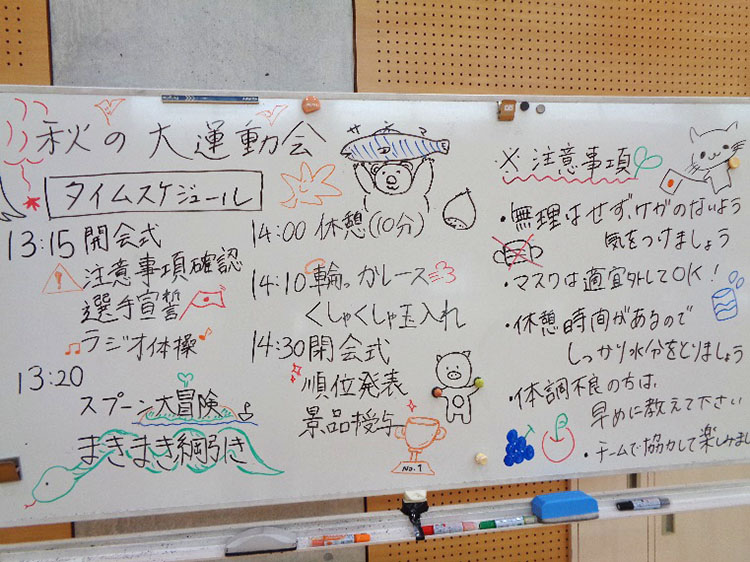 秋の大運動会
タイムスケジュール
13:15 開会式
注意事項確認
選手宣誓
ラジオ体操
13:20
スプーン大冒険
まきまき綱引き
サンマ
14:00 休憩(10分)
14:10 輪っかレース
くしゃくしゃ玉入れ
14:30 閉会式
順位発表
景品授与
No.1
※注意事項
・無理はせず、ケガのないよう
気をつけましょう
・マスクは適宜外してOK!
・休憩時間があるので
しっかり水分をとりましょう
・体調不良の方は、
早めに教えて下さい
・チームで協力して楽しみま